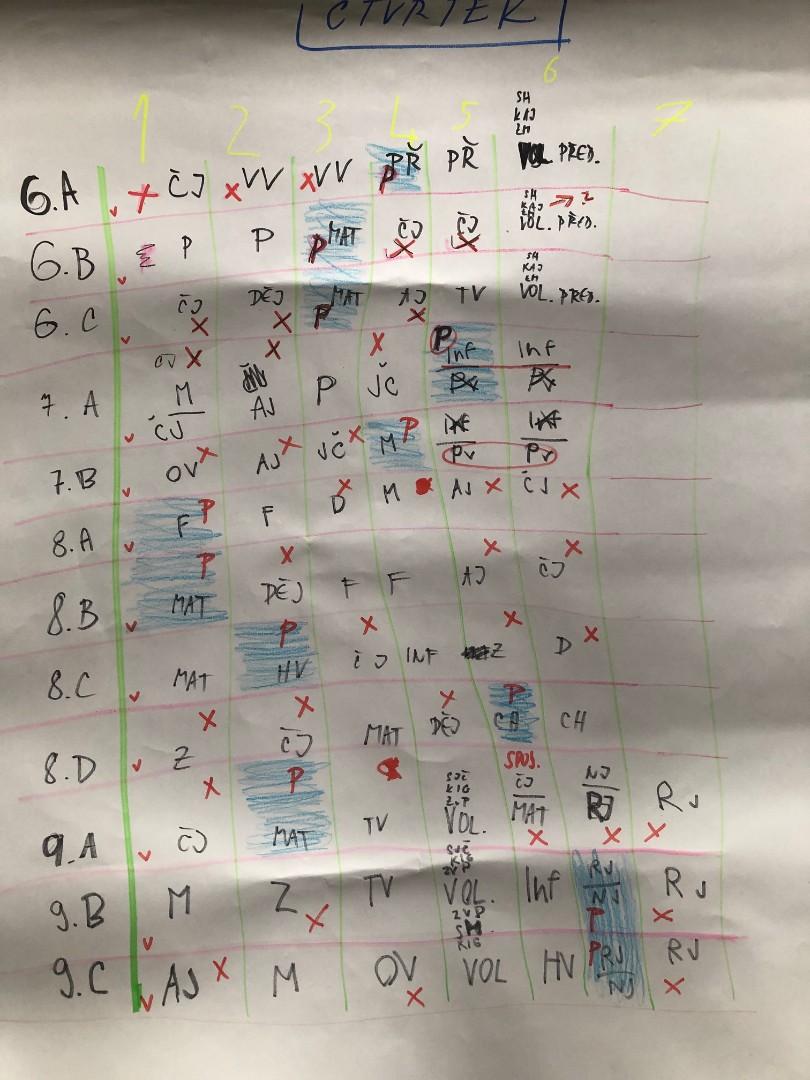 ČTVRTEK
1 2 3 4 5 6 7
6.A ČJ VV VV PŘ P PŘ SH KAJ ZM VOL. PŘED.
6.B P P P MAT ČJ ČJ SH KAJ VOL. PŘED. → ?
6.C ČJ DĚJ P MAT AJ TV SH KAJ ZM VOL. PŘED.
7.A ČJ M AJ P JČ P Inf Inf
7.B ČJ OV AJ JČ M P Inf Pv Inf Pv
8.A F P F D M AJ ČJ
8.B P MAT DĚJ F F AJ ČJ
8.C MAT P HV ČJ INF Z D
8.D Z ČJ MAT DĚJ P CH CH
9.A ČJ P MAT TV VOL. SPOJ. ČJ MAT NJ RJ RJ
9.B M Z TV ZVP VOL. Inf RJ NJ P RJ
9.C AJ M OV ZVP VOL HV P RJ NJ RJ